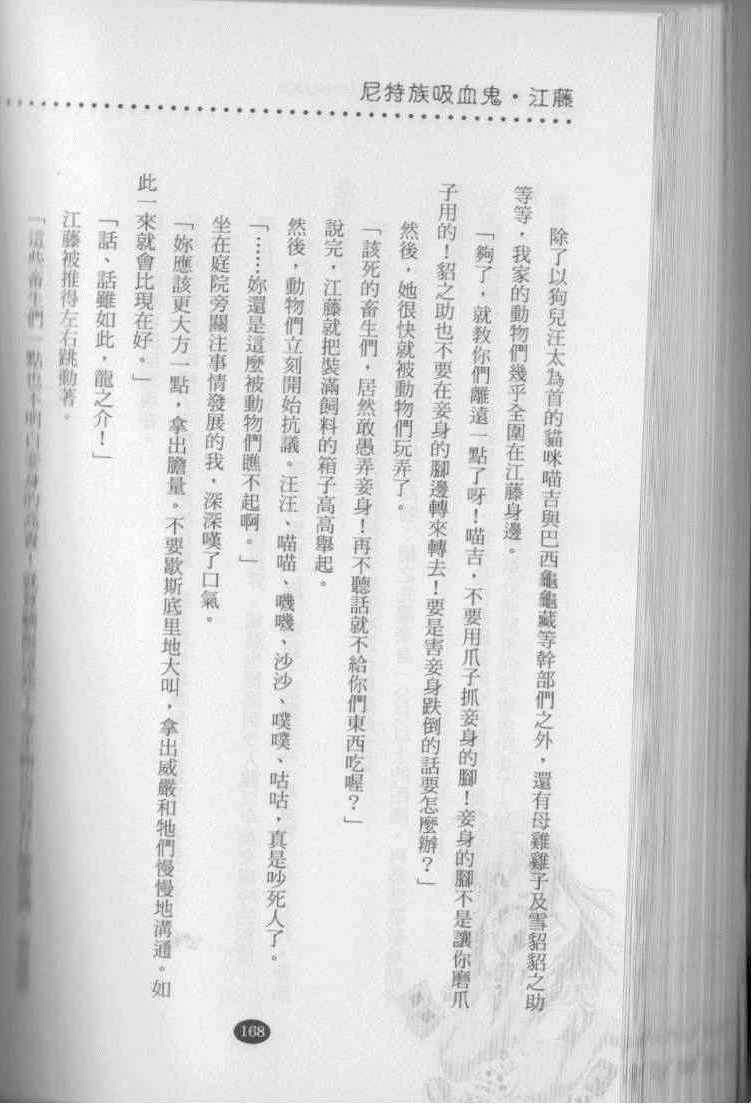 尼特族吸血鬼・江藤
除了以狗兒汪太為首的貓咪喵吉與巴西龜龜藏等幹部們之外，還有母雞雞子及雪貂貂之助
等等，我家的動物們幾乎全圍在江藤身邊。
「夠了，就教你們離遠一點了呀！喵吉，不要用爪子抓妾身的腳！妾身的腳不是讓你磨爪
子用的！貂之助也不要在妾身的腳邊轉來轉去！要是害妾身跌倒的話要怎麼辦？」
然後，她很快就被動物們玩弄了。
「該死的畜生們，居然敢愚弄妾身！再不聽話就不給你們東西吃喔？」
說完，江藤就把裝滿飼料的箱子高高舉起。
然後，動物們立刻開始抗議。汪汪、喵喵、嘰嘰、沙沙、噗噗、咕咕，真是吵死人了。
「……妳還是這麼被動物們瞧不起啊。」
坐在庭院旁關注事情發展的我，深深嘆了口氣。
「妳應該更大方一點，拿出膽量。不要歇斯底里地大叫，拿出威嚴和牠們慢慢地溝通。如
此一來就會比現在好。」
「話、話雖如此，龍之介！」
江藤被推得左右跳動著。
「這些畜生們一點也不明白妾身的
168